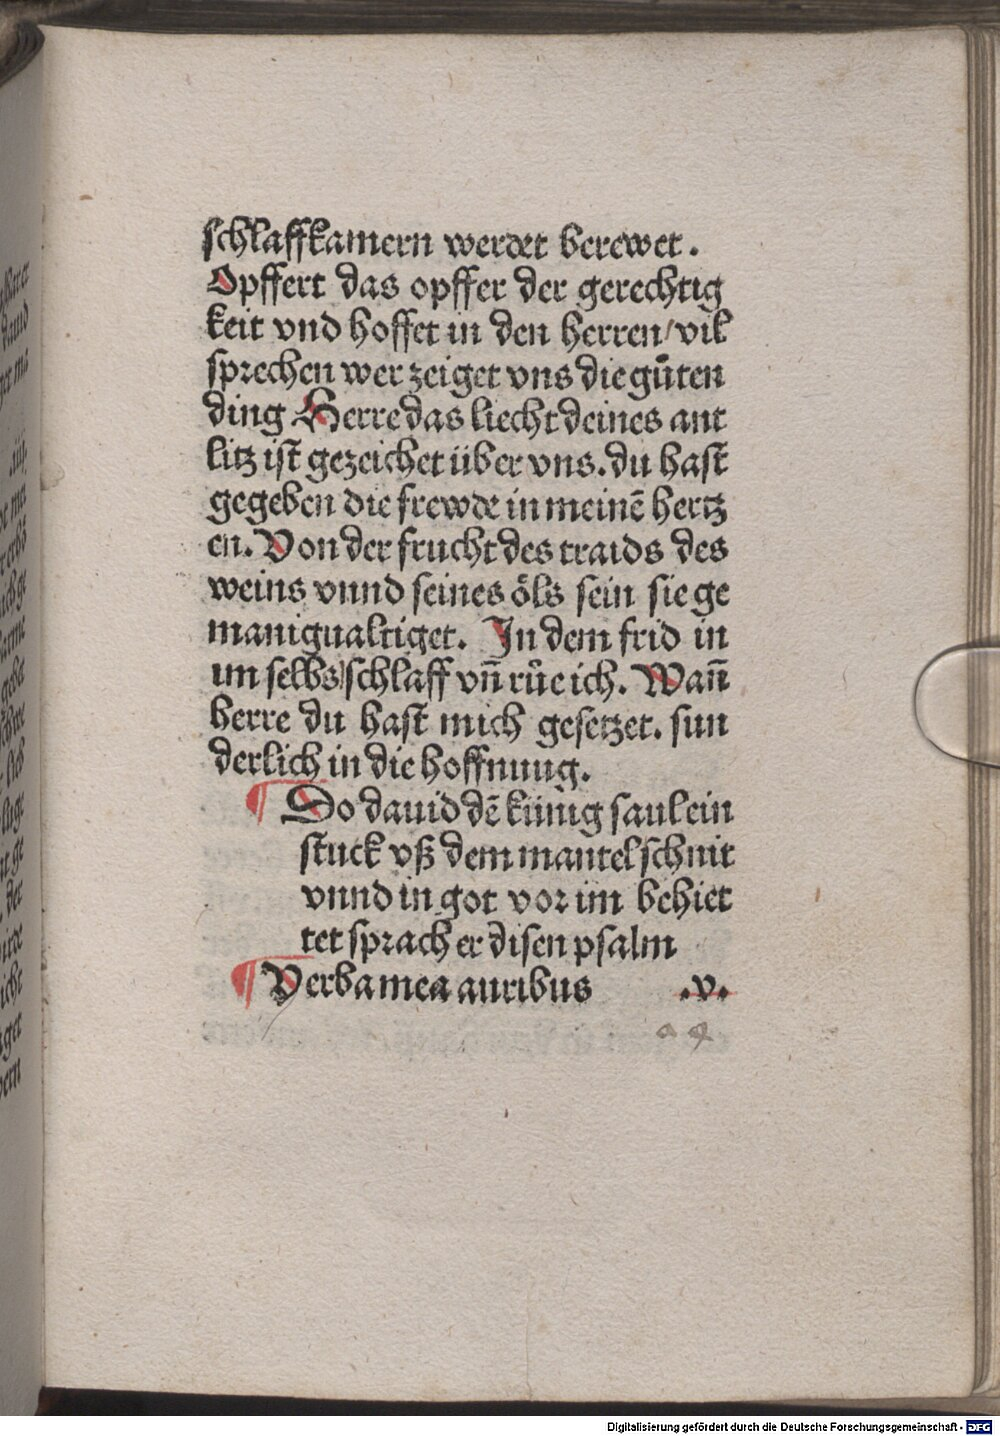 schlaffkamern werdet berewet.
Opffert das opffer der gerechtig
keit vnd hoffet in den herren/vil
sprechen wer zeiget vns die gůten
ding Herre das liecht deines ant
litz ist gezeichet über vns. du hast
gegeben die frewde in meinē hertz
en. Von der frucht des traids des
weins vnnd seines öls sein sie ge
manigualtiget. In dem frid in
im selbs/schlaff vñ růe ich. Wañ
herre du hast mich gesetzet. sun
derlich in die hoffnung.
¶ Do dauid dē künig saul ein
stuck vß dem mantel schnit
vnnd in got vor im behiet
tet sprach er disen psalm
¶ Verba mea auribus .v.
Digitalisierung gefördert durch die Deutsche Forschungsgemeinschaft - DFG